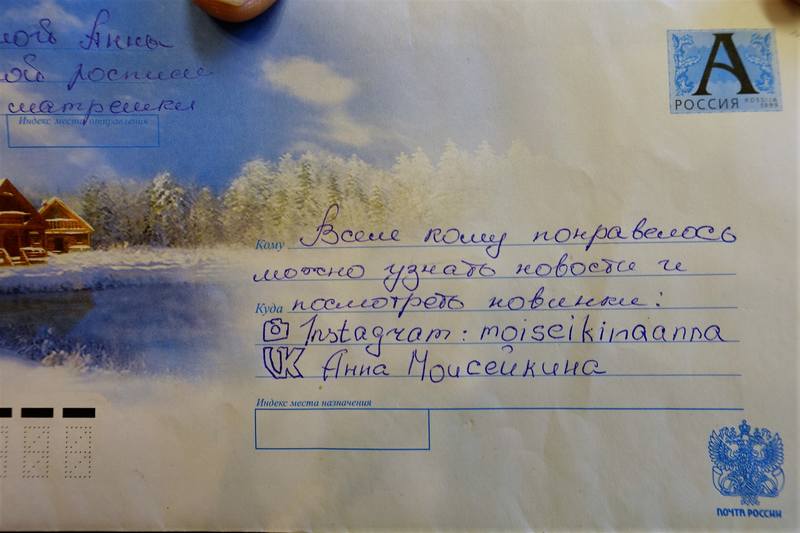 Анны
росписи
матрешки
Индекс места отправления
А
РОССИЯ ROSSIJA
Кому Всем кому понравелось
можно узнать новости и
Куда посмотреть новинки:
Instagram: moiseikinaanna
VK Анна Моисейкина
Индекс места назначения
ПОЧТА РОССИИ